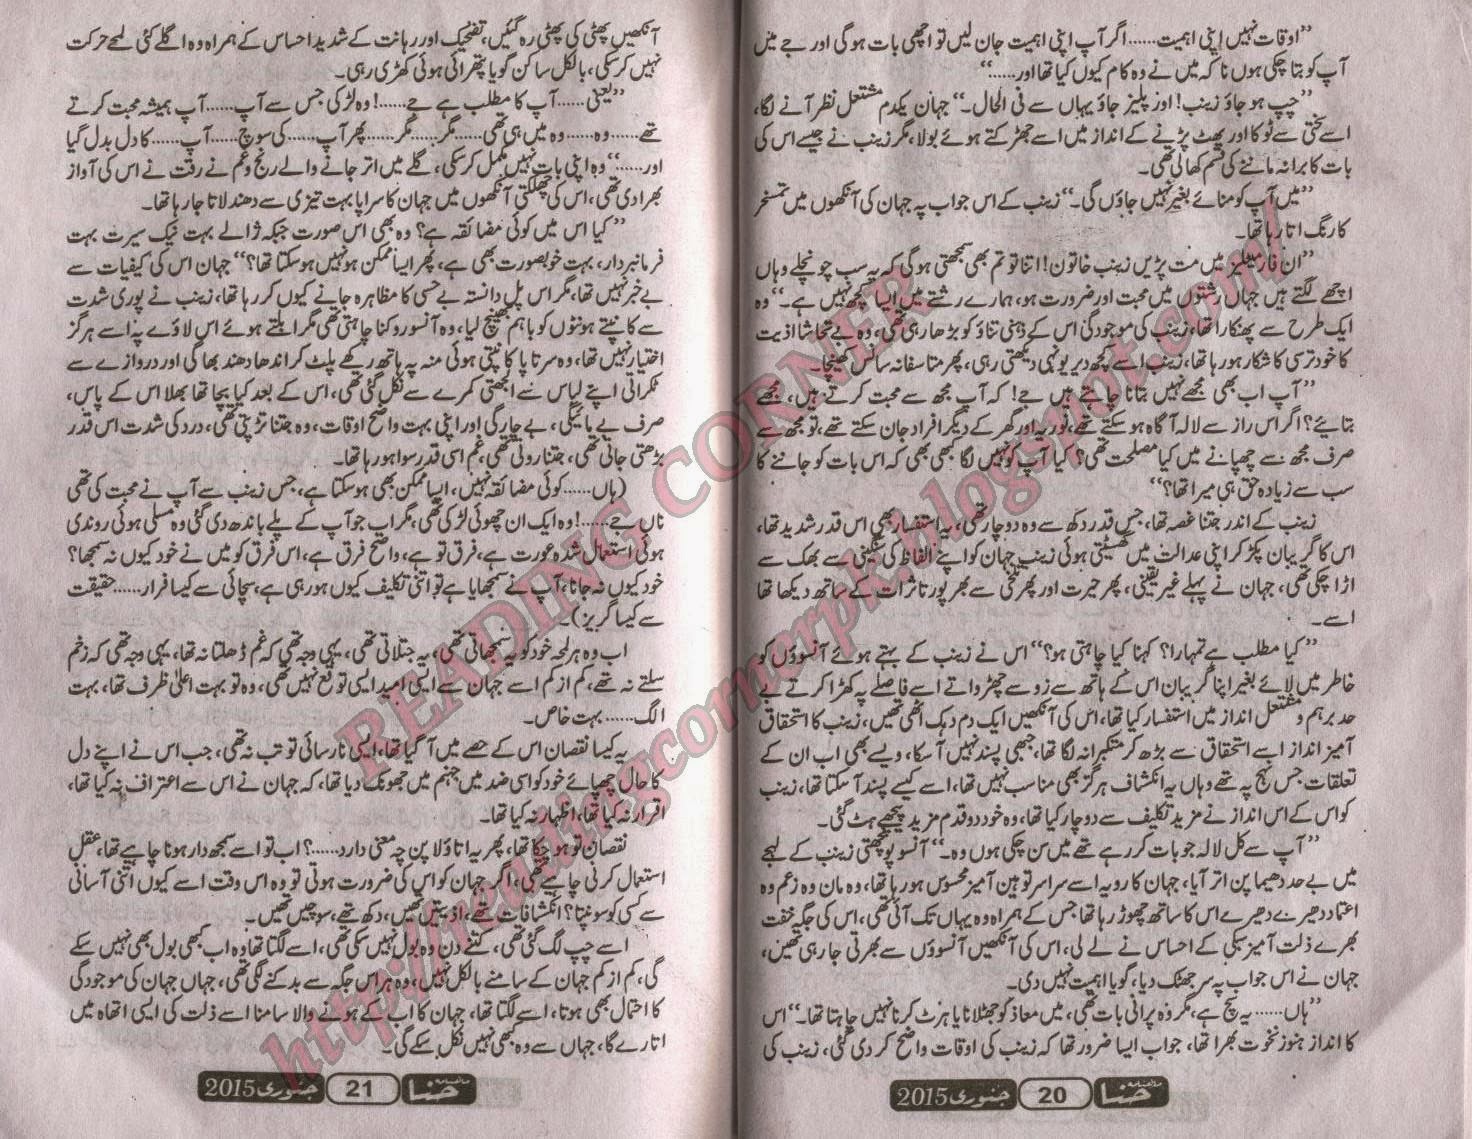 ”اوقات نہیں اپنی اہمیت...... اگر آپ اپنی اہمیت جان لیں تو اچھی بات ہوگی اور جے میں
آپ کو بتا چکی ہوں نا کہ میں نے وہ کام کیوں کیا تھا اور......“
”چپ ہو جاؤ زینب! اور پلیز جاؤ یہاں سے فی الحال۔“ جہان یکدم مشتعل نظر آنے لگا،
اسے سختی سے ٹوکا اور پھٹ پڑنے کے انداز میں اسے جھڑکتے ہوئے بولا، مگر زینب نے جیسے اس کی
بات کا برا نہ ماننے کی قسم کھائی تھی۔
”میں آپ کو منائے بغیر نہیں جاؤں گی۔“ زینب کے اس جواب پہ جہان کی آنکھوں میں تمسخر
کا رنگ اترا رہا تھا۔
”ان فارمیلٹیز میں مت پڑیں زینب خاتون! اتنا تو تم بھی سمجھتی ہوگی کہ یہ سب چونچلے وہاں
اچھے لگتے ہیں جہاں رشتوں میں محبت اور ضرورت ہو، ہمارے رشتے میں ایسا کچھ نہیں ہے۔“ وہ
ایک طرح سے پھنکارا تھا، زینب کی موجودگی اس کے ذہنی تناؤ کو بڑھا رہی تھی، وہ بے تحاشا اذیت
کا خود ترسی کا شکار ہو رہا تھا، زینب اسے کچھ دیر یونہی دیکھتی رہی، پھر متاسفانہ سانس کھینچا۔
”آپ اب بھی مجھے نہیں بتانا چاہتے ہیں جے! کہ آپ مجھ سے محبت کرتے ہیں، مجھے
بتایئے؟ اگر اس راز سے لالہ آگاہ ہو سکتے تھے، نوریہ اور گھر کے دیگر افراد جان سکتے تھے، تو مجھ سے
صرف مجھ سے چھپانے میں کیا مصلحت تھی؟ کیا آپ کو نہیں لگا کبھی بھی کہ اس بات کو جاننے کا
سب سے زیادہ حق ہی میرا تھا؟“
زینب کے اندر جتنا غصہ تھا، جس قدر دکھ سے وہ دوچار تھی، یہ استفسار بھی اس قدر شدید تھا،
اس کا گریبان پکڑ کر اپنی عدالت میں گھسیٹتی ہوئی زینب جہان کو اپنے الفاظ کی سنگینی سے بھک سے
اڑا چکی تھی، جہان نے پہلے غیر یقینی، پھر حیرت اور پھر تلخی سے بھرپور تاثرات کے ساتھ دیکھا تھا
اسے۔
”کیا مطلب ہے تمہارا؟ کہنا کیا چاہتی ہو؟“ اس نے زینب کے بہتے ہوئے آنسوؤں کو
خاطر میں لائے بغیر اپنا گریبان اس کے ہاتھ سے زور سے چھڑواتے اسے فاصلے پہ کھڑا کرتے بے
حد برہم و مشتعل انداز میں استفسار کیا تھا، اس کی آنکھیں ایک دم دہک اٹھی تھیں، زینب کا استحقاق
آمیز انداز اسے استحقاق سے بڑھ کر متکبرانہ لگا تھا، جبھی پسند نہیں آ سکا، ویسے بھی اب ان کے
تعلقات جس نہج پہ تھے وہاں یہ انکشاف ہرگز بھی مناسب نہیں تھا، اسے کیسے پسند آ سکتا تھا، زینب
کو اس کے اس انداز نے مزید تکلیف سے دوچار کیا تھا، وہ خود دو قدم مزید پیچھے ہٹ گئی۔
”آپ سے کل لالہ جو بات کر رہے تھے میں سن چکی ہوں وہ۔“ آنسو پونچھتی زینب کے لہجے
میں بے حد دھیما پن اتر آیا، جہان کا رویہ اسے سراسر توہین آمیز محسوس ہو رہا تھا، وہ مان وہ زعم وہ
اعتماد دھیرے دھیرے اس کا ساتھ چھوڑ رہا تھا جس کے ہمراہ وہ یہاں تک آئی تھی، اس کی جگہ خفت
بھرے ذلت آمیز سبکی کے احساس نے لے لی، اس کی آنکھیں آنسوؤں سے بھرتی جا رہی تھیں،
جہان نے اس جواب پہ سر جھٹک دیا، گویا اہمیت نہیں دی۔
”ہاں...... یہ سچ ہے، مگر وہ پرانی بات تھی، میں معاذ کو جھٹلانا یا ہرٹ کرنا نہیں چاہتا تھا۔“ اس
کا انداز ہنوز نخوت بھرا تھا، جواب ایسا ضرور تھا کہ زینب کی اوقات واضح کر دی گئی، زینب کی
ماہنامہ حنا 20 جنوری 2015
آنکھیں پھٹی کی پھٹی رہ گئیں، تضحیک اور اہانت کے شدید احساس کے ہمراہ وہ اگلے کئی لمحے حرکت
نہیں کر سکی، بالکل ساکن گویا پتھرائی ہوئی کھڑی رہی۔
”یعنی...... آپ کا مطلب ہے جے......! وہ لڑکی جس سے آپ...... آپ ہمیشہ محبت کرتے
تھے...... وہ...... وہ میں ہی تھی...... مگر...... مگر...... پھر آپ...... کی سوچ...... آپ...... کا دل بدل گیا
اور......“ وہ اپنی بات نہیں مکمل کر سکی، گلے میں اتر جانے والے رنج و غم نے رقت نے اس کی آواز
بھرا دی تھی، اس کی چھلکتی آنکھوں میں جہان کا سراپا بہت تیزی سے دھندلاتا جا رہا تھا۔
”کیا اس میں کوئی مضائقہ ہے؟ وہ بھی اس صورت جبکہ ژالے بہت نیک سیرت بہت
فرمانبردار، بہت خوبصورت بھی ہے، پھر ایسا ممکن ہو نہیں ہو سکتا تھا؟“ جہان اس کی کیفیات سے
بے خبر نہیں تھا، مگر اس پل دانستہ بے حسی کا مظاہرہ جانے کیوں کر رہا تھا، زینب نے پوری شدت
سے کانپتے ہونٹوں کو باہم بھینچ لیا، وہ آنسو روکنا چاہتی تھی مگر ابلتے ہوئے اس لاوے پہ اسے ہرگز
اختیار نہیں تھا، وہ سرتاپا کانپتی ہوئی منہ پہ ہاتھ رکھے پلٹ کر اندھا دھند بھاگی اور دروازے سے
ٹکراتی اپنے لباس سے الجھتی کمرے سے نکل گئی تھی، اس کے بعد کیا بچا تھا بھلا اس کے پاس،
صرف بے مائیگی، بے چارگی اور اپنی بہت واضح اوقات، وہ جتنا تڑپتی تھی، درد کی شدت اس قدر
بڑھتی جاتی تھی، جتنا روتی تھی، غم اسی قدر سوا ہو رہا تھا۔
(ہاں...... کوئی مضائقہ نہیں، ایسا ممکن بھی ہو سکتا ہے، جس زینب سے آپ نے محبت کی تھی
ناں جے......! وہ ایک ان چھوئی لڑکی تھی، مگر اب جو آپ کے پلے باندھ دی گئی وہ مسلی ہوئی روندی
ہوئی استعمال شدہ عورت ہے، فرق تو ہے، واضح فرق ہے، اس فرق کو میں نے خود کیوں نہ سمجھا؟
خود کیوں نہ جانا، آپ نے سمجھایا ہے تو اتنی تکلیف کیوں ہو رہی ہے، سچائی سے کیسا فرار...... حقیقت
سے کیسا گریز)۔
اب وہ ہر لمحہ خود کو یہ سمجھاتی تھی، یہ جتلاتی تھی، یہی وجہ تھی کہ غم ڈھلتا نہ تھا، یہی وجہ تھی کہ زخم
سلتے نہ تھے، کم از کم اسے جہان سے ایسی امید ایسی توقع نہیں تھی، وہ تو بہت اعلیٰ ظرف تھا، بہت
الگ...... بہت خاص۔
یہ کیسا نقصان اس کے حصے میں آ گیا تھا، ایسی نارسائی تو تب نہ تھی، جب اس نے اپنے دل
کا حال چھپائے خود کو اسی ضد میں جہنم میں جھونک دیا تھا، کہ جہان نے اس سے اعتراف نہ کیا تھا،
اقرار نہ کیا تھا، اظہار نہ کیا تھا۔
نقصان تو ہو چکا تھا، پھر یہ اتاؤلا پن چہ معنی دارد......؟ اب تو اسے سمجھ دار ہونا چاہیے تھا، عقل
استعمال کرنی چاہیے تھی، اگر جہان کو اس کی ضرورت ہوتی تو وہ اس وقت اسے کیوں اتنی آسانی
سے کسی کو سونپتا؟ انکشافات تھے، اذیتیں تھیں، دکھ تھے، سوچیں تھیں۔
اسے چپ لگ گئی تھی، کتنے دن وہ بول نہیں سکی تھی، اسے لگتا تھا وہ اب کبھی بول بھی نہیں سکے
گی، کم از کم جہان کے سامنے بالکل نہیں، وہ ہر اس جگہ سے بدکنے لگی تھی، جہاں جہان کی موجودگی
کا احتمال بھی ہوتا، اسے لگتا تھا، جہان کا اب کے ہونے والا سامنا اسے ذلت کی ایسی اتھاہ میں
اتارے گا، جہاں سے وہ کبھی نہیں نکل سکے گی۔
ماہنامہ حنا 21 جنوری 2015
READING CORNER
http://readingcornerpk.blogspot.com/